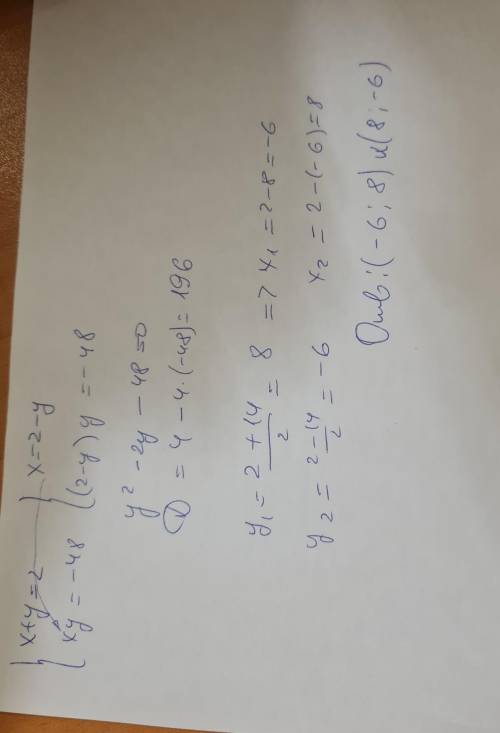 { x+y=2 { x=2-y
{ xy = -48 { (2-y) y = -48
y² - 2y - 48 = 0
D = 4 - 4·(-48) = 196
y₁ = (2+14)/2 = 8 => x₁ = 2-8 = -6
y₂ = (2-14)/2 = -6 x₂ = 2-(-6) = 8
Отв: (-6; 8) и (8; -6)